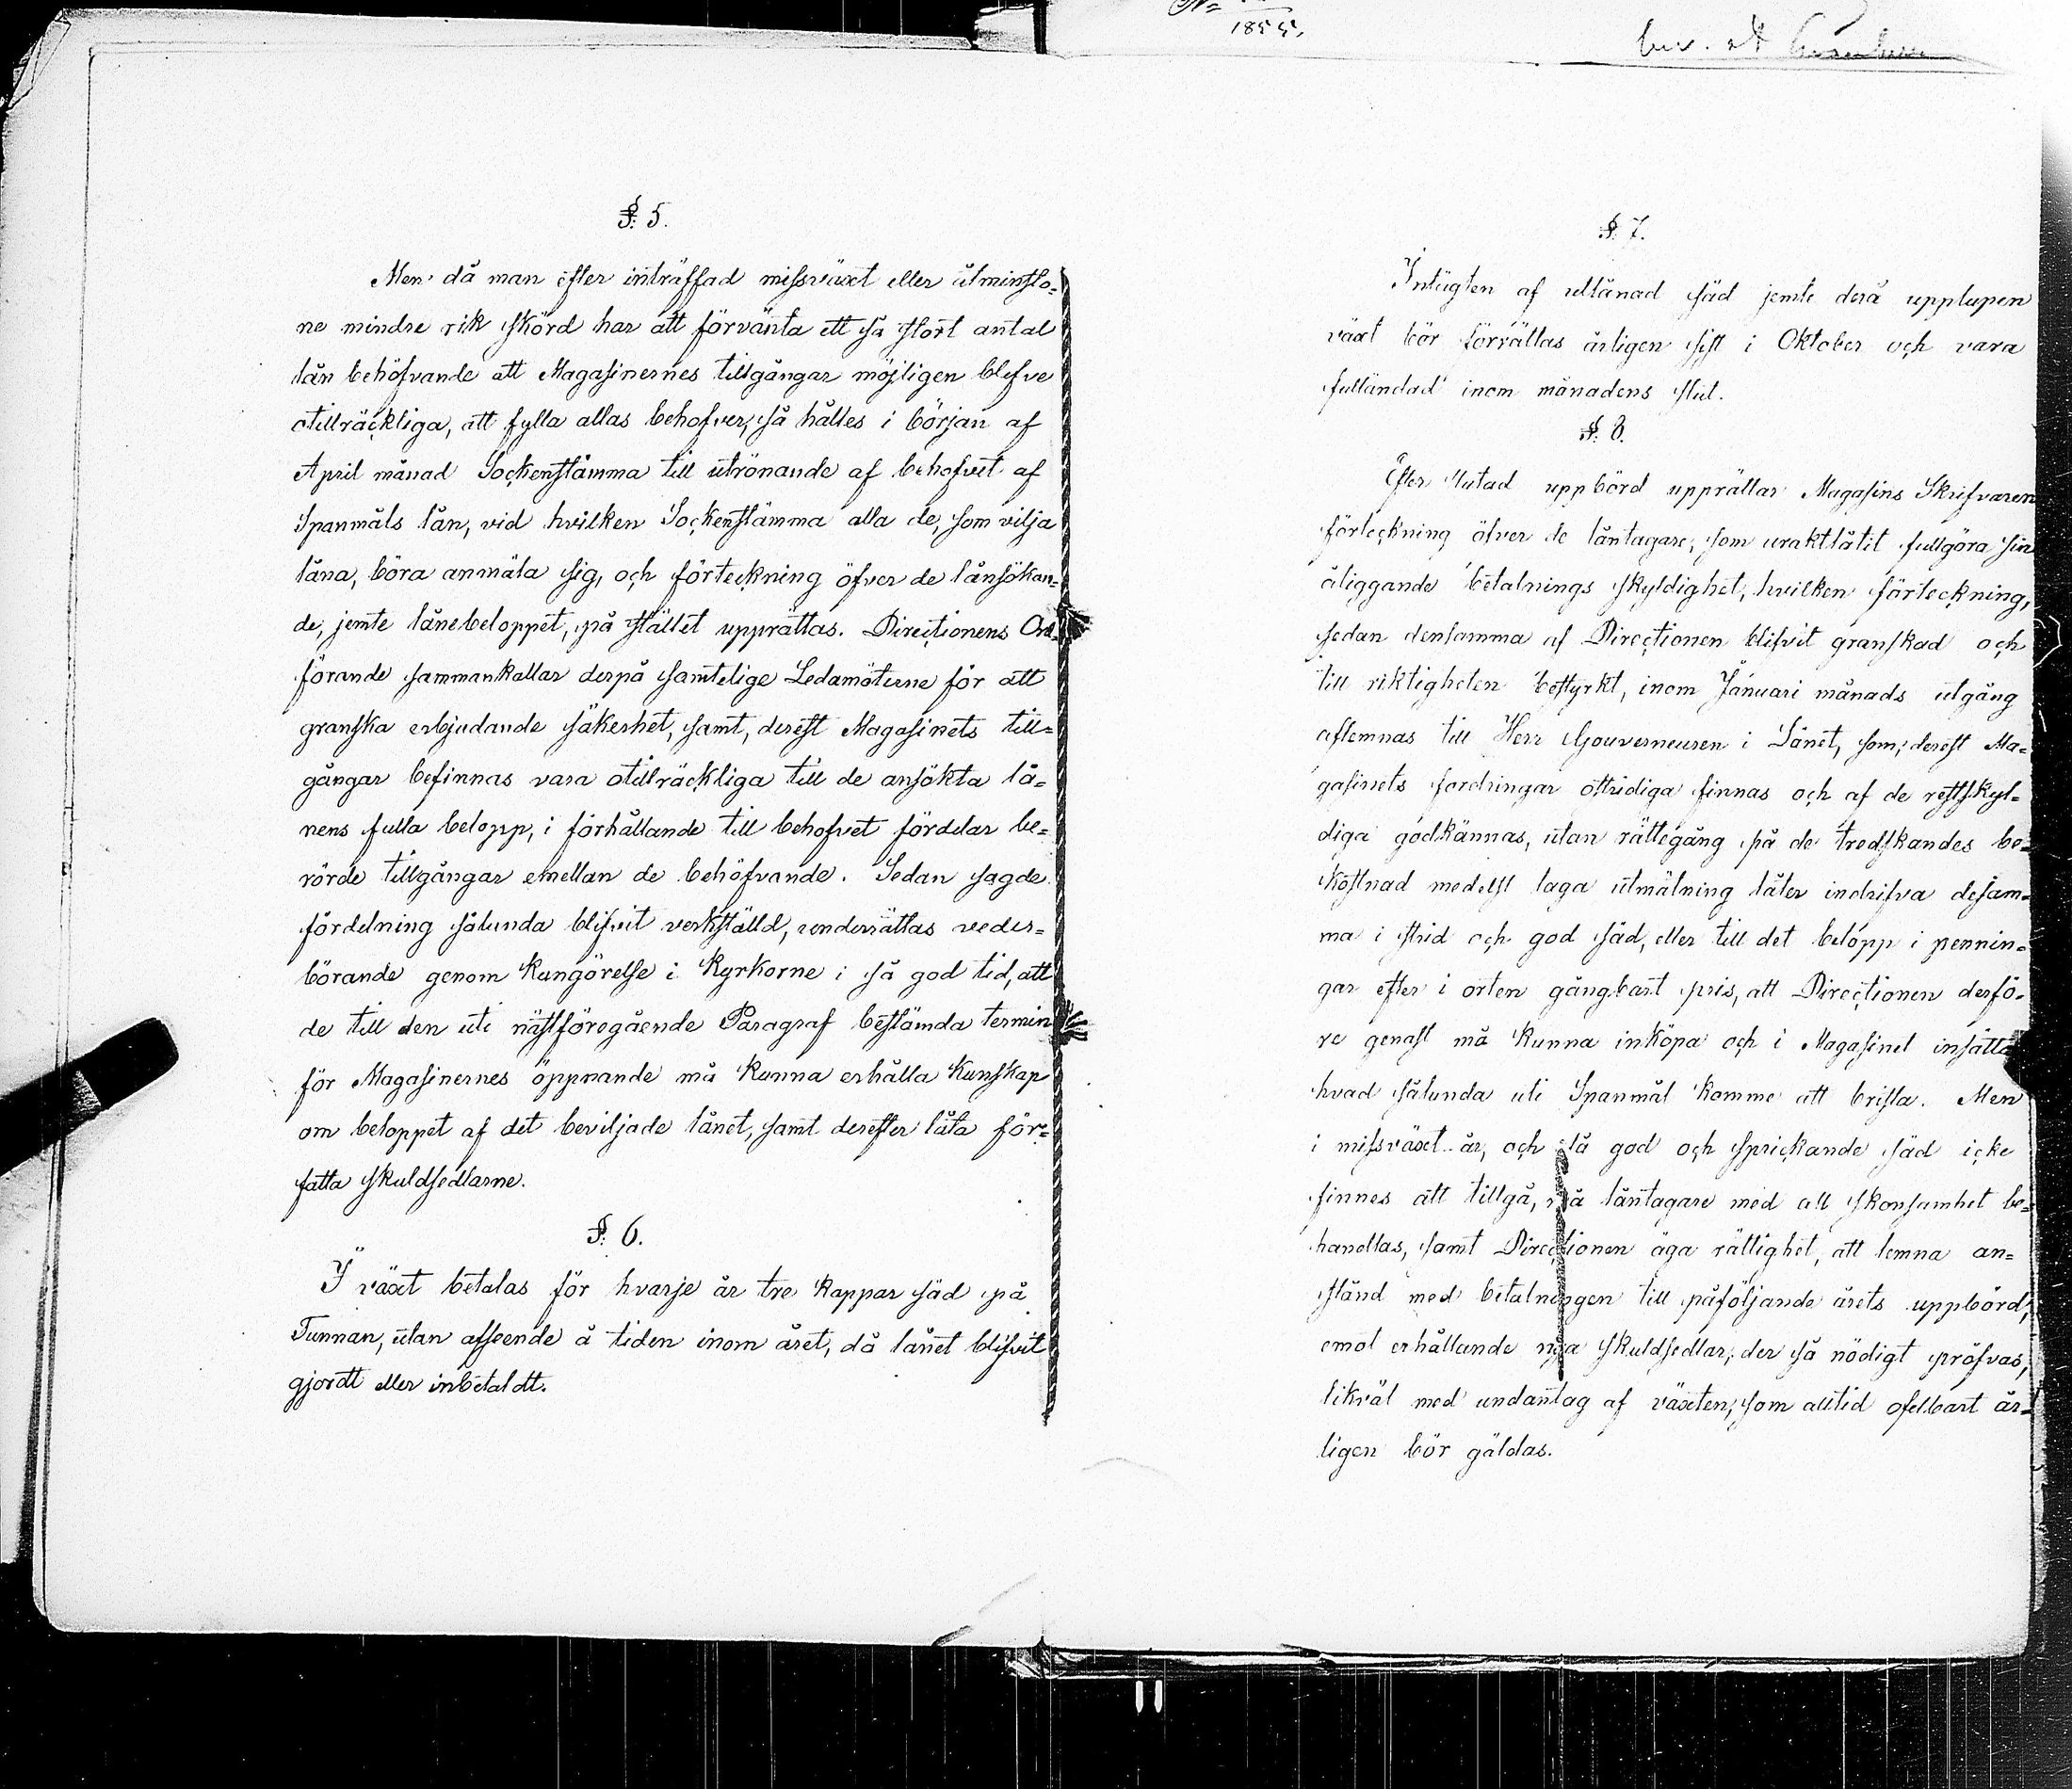 §. 5.
Men då man efter inträffad missväxt eller åtminsto=
ne mindre rik skörd har att förvänta ett så stort antal
lån behöfvande att Magasinernes tillgångar möjligen blefve
otillräckliga, att fylla allas behofver, så hålles i början af
April månad Sockenstämma till utrönande af behofvet af
Spanmåls lån, vid hvilken Sockenstämma alla de, som vilja
låna, böra anmäla sig, och förteckning öfver de lånsökan=
de, jemte lånebeloppet, på stället upprättas. Directionens Ord=
förande sammankallar derpå samtelige Ledamöterne för att
granska erbjudande säkerhet, samt, derest Magasinets till=
gångar befinnas vara otillräckliga till de ansökta lå=
nens fulla belopp, i förhållande till behofvet fördelar be=
rörde tillgångar emellan de behöfvande. Sedan sagde
fördelning sålunda blifvit verkställd, underrättas veder=
börande genom kungörelse i Kyrkorne i så god tid, att
de till den uti nästföregående Paragraf bestämda termin
för Magasinernes öppnande må kunna erhålla kunskap
om beloppet af det beviljade lånet, samt derefter låta för=
fatta skuldsedlarne.
§. 6.
I växt betalas för hvarje år tre kappar säd på
Tunnan, utan afseende å tiden inom året, då lånet blifvit
gjordt eller inbetaldt.
1855.
§. 7.
Intägten af utlånad säd jemte derå upplupen
växt bör förrättas årligen sist i Oktober och vara
fulländad inom månadens slut.
§. 8.
Efter slutad uppbörd upprättar Magasins Skrifvaren
förteckning öfver de låntagare, som uraktlåtit fullgöra sin
åliggande betalnings skyldighet, hvilken förteckning,
sedan densamma af Directionen blifvit granskad och
till riktigheten bestyrkt, inom Januari månads utgång
aflemnas till Herr Gouverneuren i Länet, som, derest Ma=
gasinets fordringar ostridiga finnas och af de restskyl=
diga godkännas, utan rättegång på de tredskandes be=
kostnad medelst laga utmätning låter indrifva desam=
ma i strid och god säd, eller till det belopp i pennin=
gar efter i orten gångbart pris, att Directionen derfö=
re genast må kunna inköpa och i Magasinet insätta
hvad sålunda uti Spanmål komme att brista. Men
i missväxt år, och då god och sprickande säd icke
finnes att tillgå, må låntagare med all skonsamhet be=
handlas, samt Directionen äga rättighet, att lemna an=
stånd med betalningen till påföljande årets uppbörd,
emot erhållande nya skuldsedlar, der så nödigt pröfvas,
likväl med undantag af växten, som alltid ofelbart år=
ligen bör gäldas.